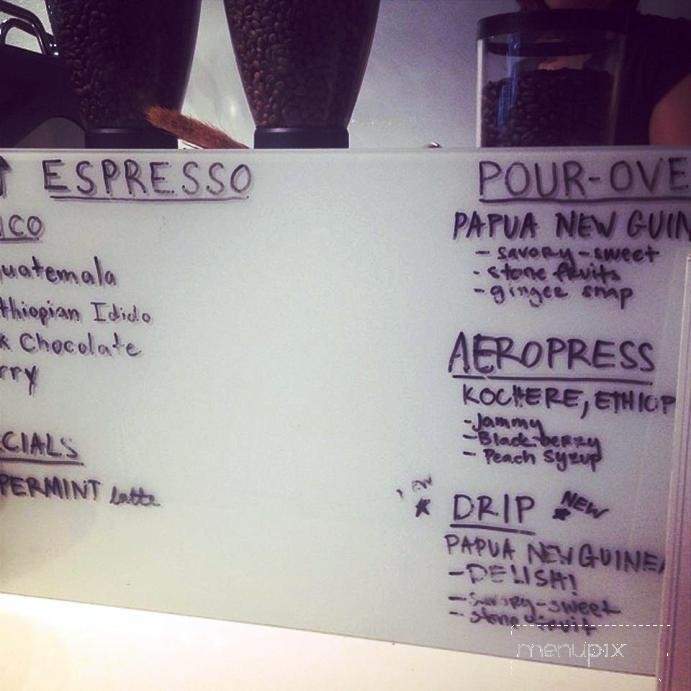 ESPRESSO
ICO
uatemala
thiopian Idido
k Chocolate
rry
CIALS
PERMINT latte
POUR-OVE
PAPUA NEW GUIN
- savory-sweet
- stone fruits
- ginger snap
AEROPRESS
KOCHERE, ETHIOP
- Jammy
- Blackberry
- Peach Syrup
DRIP NEW
PAPUA NEW GUINEA
- DELISH!
- Savory-sweet
- stone fruit
menupix